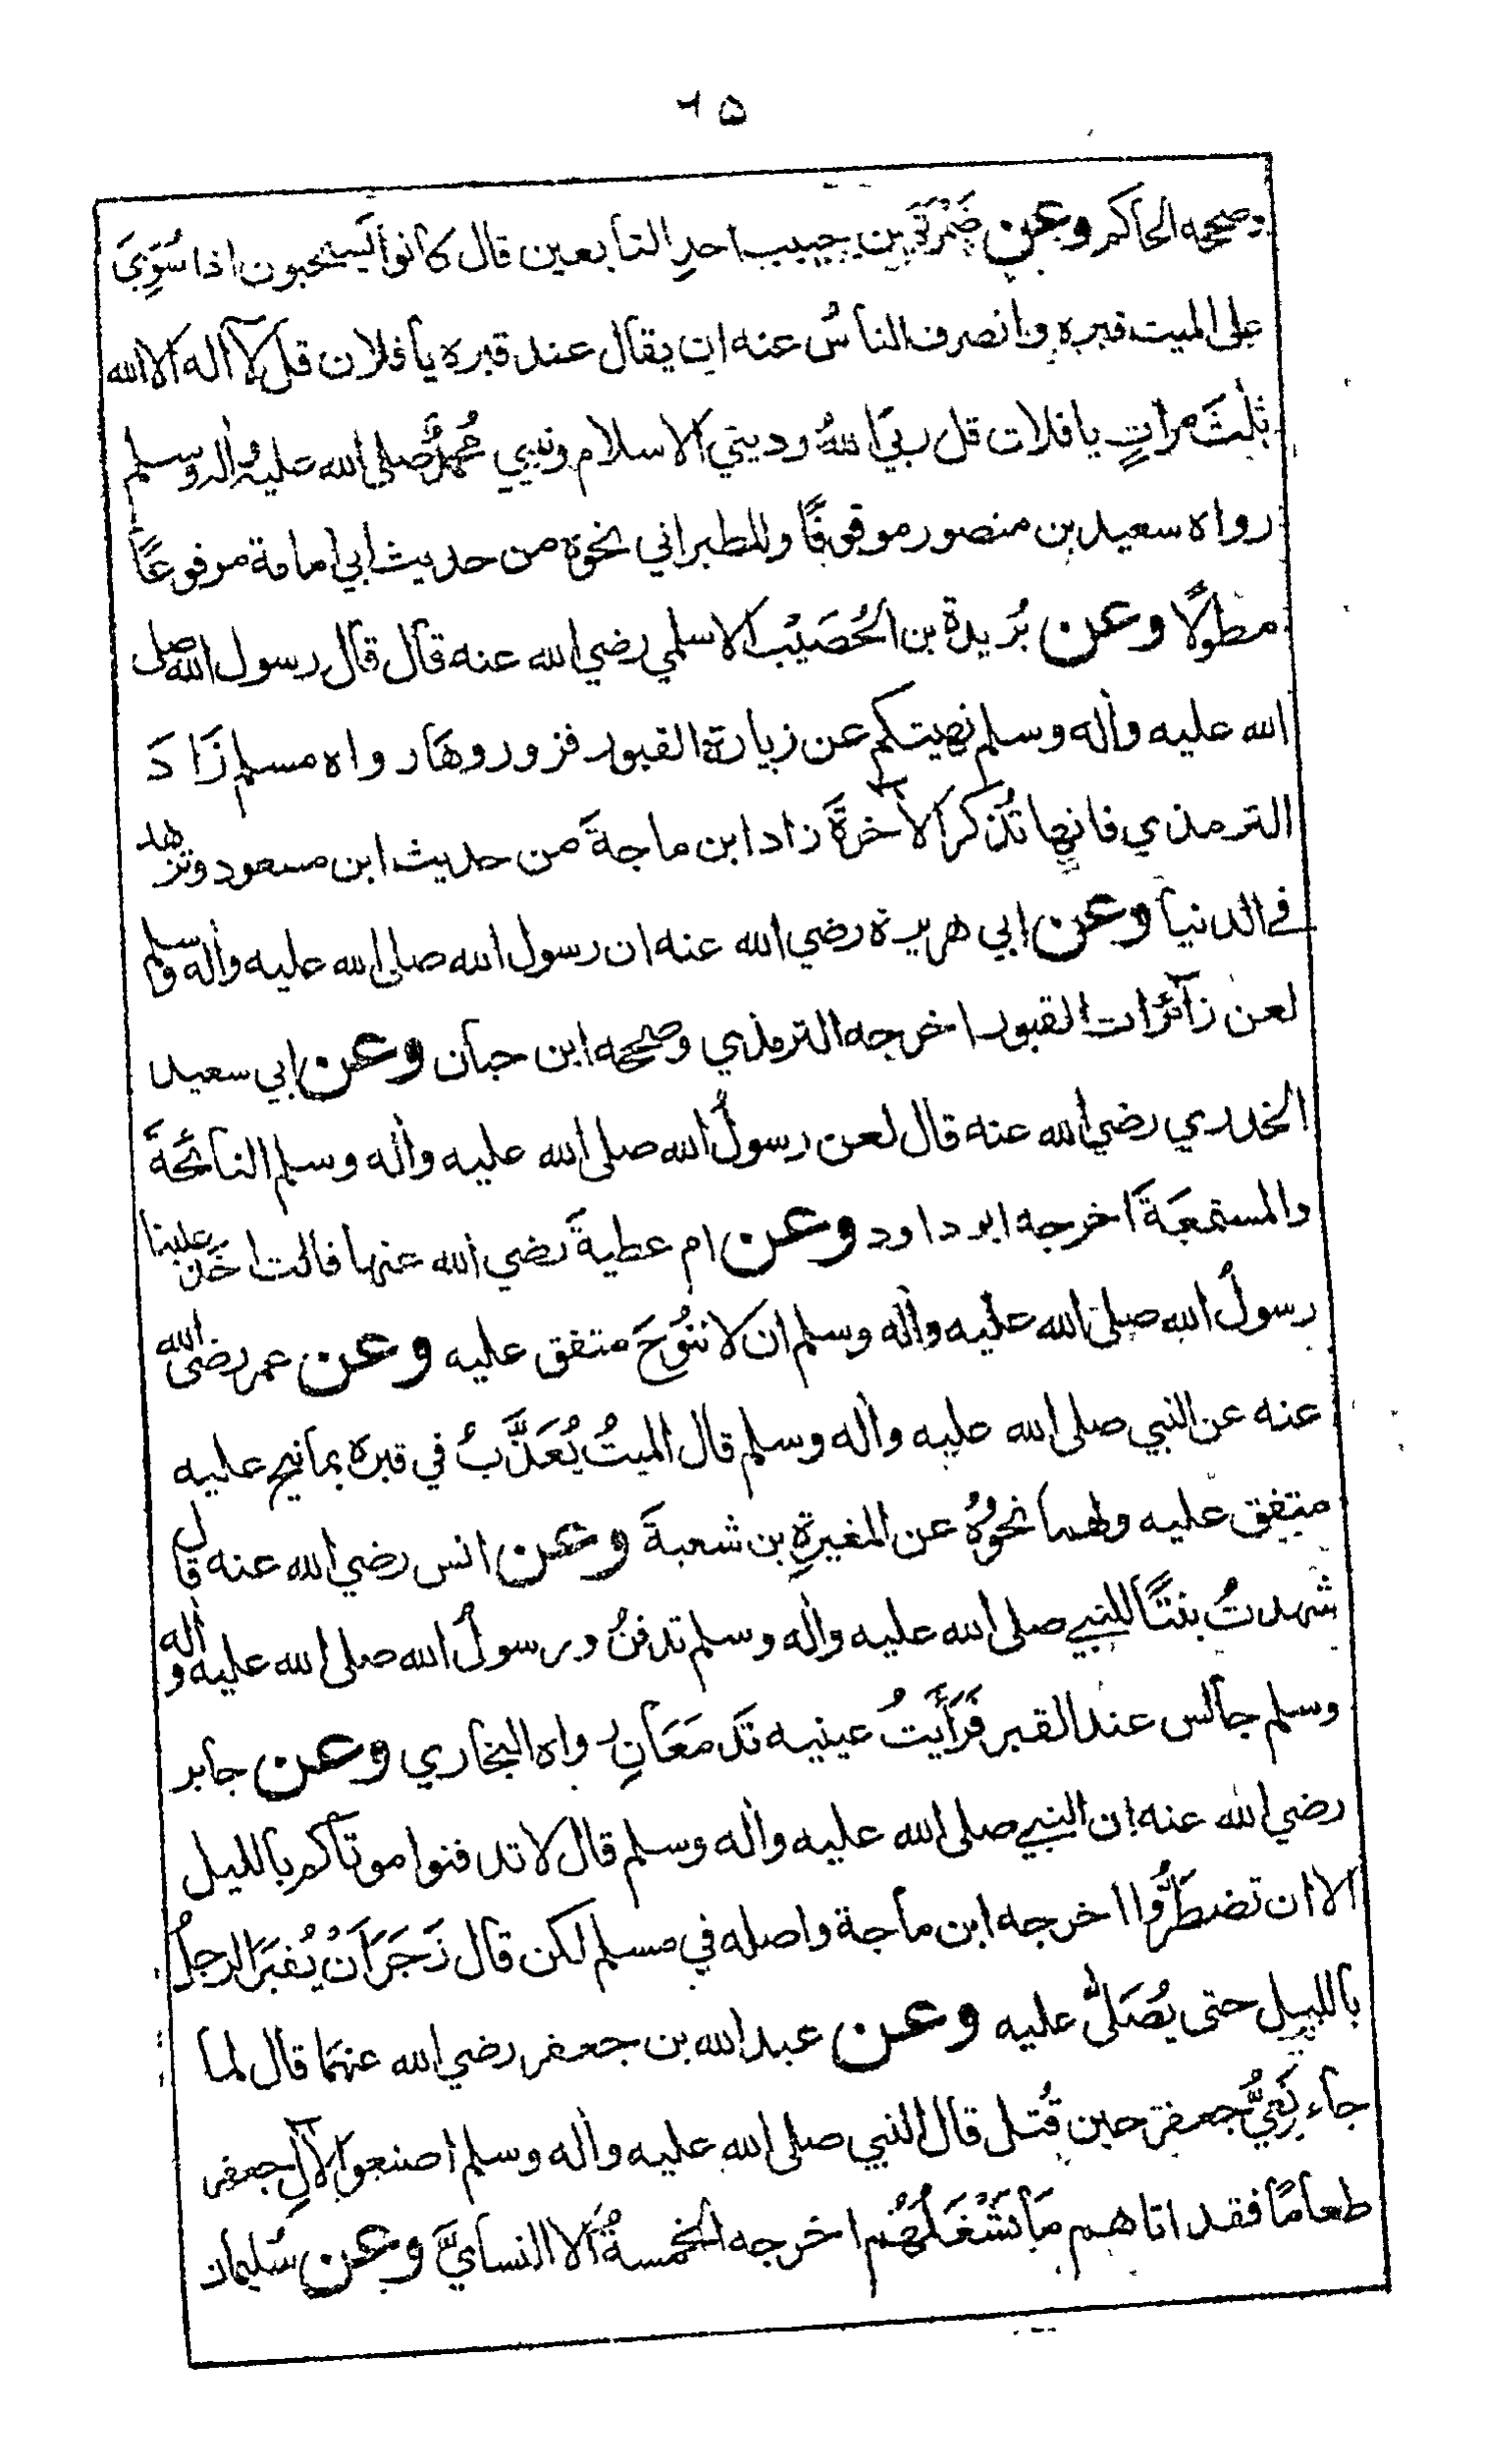 ٦٥
وصححه الحاكم وعن ضَمْرَةَ بن حبيب احدِ التابعين قال كانوا يستحبون اذا سُوِّيَ
على الميت قبره وانصرف الناسُ عنه ان يقال عند قبره يا فلان قل لآ اله الا الله
ثلٰثَ مراتٍ يا فلان قل ربيَ اللهُ وديني الاسلام ونبيي محمدٌ صلى الله عليه واٰله وسلم
رواه سعيد بن منصور موقوفًا وللطبراني نحوه من حديث ابي امامة مرفوعًا
مطولًا وعن بُريدة بن الحُصَيْب الاسلمي رضي الله عنه قال قال رسول الله صلى
الله عليه واٰله وسلم نهيتكم عن زيارة القبور فزوروها رواه مسلم زَادَ
الترمذي فانها تُذكر الآخرةَ زاد ابن ماجةَ من حديث ابن مسعود وتزهد
في الدنيا وعن ابي هريرة رضي الله عنه ان رسول الله صلى الله عليه واٰله وسلم
لعن زآئرات القبور اخرجه الترمذي وصححه ابن حبان وعن ابي سعيد
الخدري رضي الله عنه قال لعن رسولُ الله صلى الله عليه واٰله وسلم النائحَةَ
والمستمعَةَ اخرجه ابو داود وعن ام عطيةَ رضي الله عنها قالت اخذ علينا
رسولُ الله صلى الله عليه واٰله وسلم ان لا ننُوحَ متفق عليه وعن عمر رضي الله
عنه عن النبي صلى الله عليه واٰله وسلم قال الميتُ يُعَذَّبُ في قبره بما نيح عليه
متفق عليه ولهما نحوُهُ عن المغيرةِ بن شعبةَ وعن انس رضي الله عنه قال
شهدتُ بنتًا للنبي صلى الله عليه واٰله وسلم تدفنُ ورسولُ الله صلى الله عليه واٰله
وسلم جالس عند القبر فَرَأَيتُ عينيه تَدمَعَانِ رواه البخاري وعن جابر
رضي الله عنه ان النبي صلى الله عليه واٰله وسلم قال لا تدفنوا موتاكم بالليل
الا ان تضطَرُّوا اخرجه ابن ماجة واصله في مسلم لكن قال زَجَرَ اَنْ يُقبَرَ الرجلُ
بالليل حتى يُصَلَّى عليه وعن عبد الله بن جعفر رضي الله عنهما قال لما
جاء نَعِيُّ جعفر حين قُتل قال النبي صلى الله عليه واٰله وسلم اصنعوا لآلِ جعفر
طعامًا فقد اتاهم مَا يَشْغَلُهُم اخرجه الخمسةُ الا النسايَّ وعن سُليمان